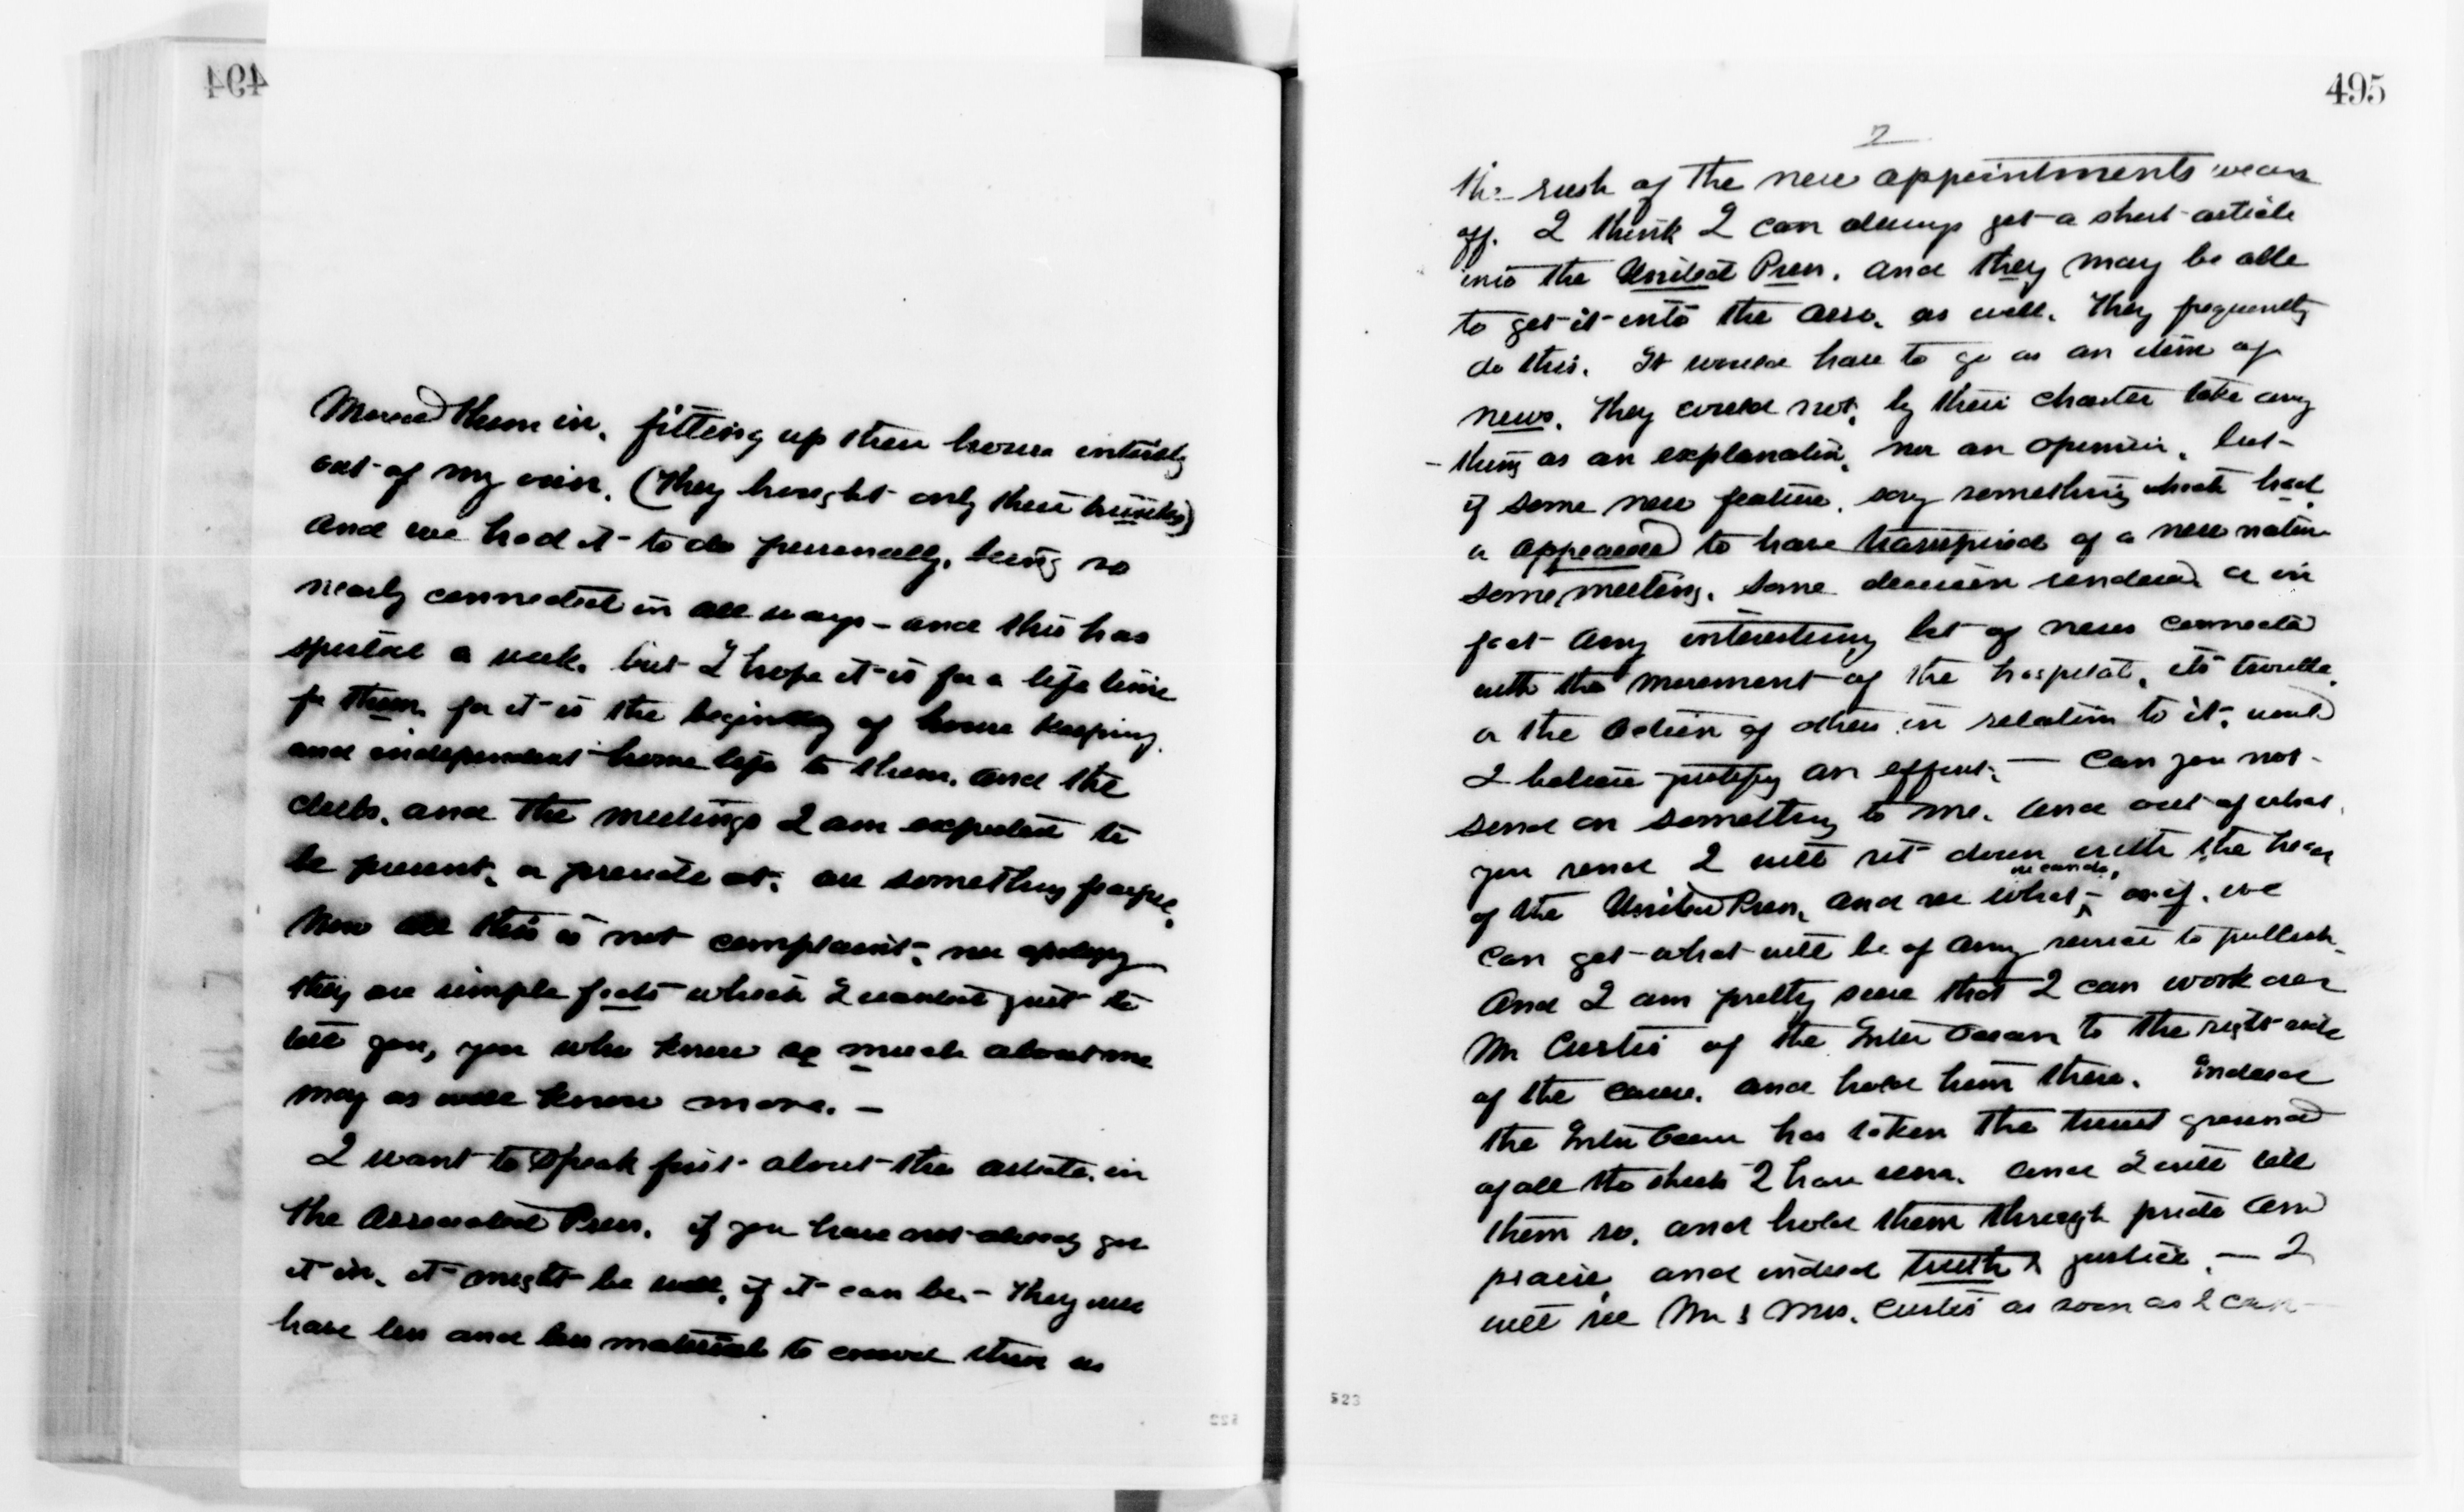 494
Moved them in, fitting up their house entirely
out of my own. (They brought only their trunks)
and we had it to do personally, being so
nearly connected in all ways - and this has
spoiled a week, but I hope it is for a life time
for them, for it is the beginning of house keeping
and independent home life to them, and the
clubs, and the meetings I am expected to
be present, or preside at, are something
Now all this is not complaint, nor apology
they are simple facts which I wanted just to
tell you, you who know so much about me
may as well know more. -
I want to speak first about the article in
the Associated Press, if you have not already got
it in, it might be well, if it can be. - They will
have less and less material to crowd them as
522
495
2
the rush of the new appointments wears
off. I think I can always get a short article
into the United Press, and they may be able
to get it into the Asso. as well. They frequently
do this. It would have to go as an item of
news. They could not, by their charter take any
- thing as an explanation, nor an opinion, but
if some new feature, say something which had
or appeared to have transpired of a new nature
some meeting, some decision rendered or in
fact any interesting bit of news connected
with the movement of the hospital, its trouble,
or the action of others in relation to it, would
I believe justify an effort. - Can you not
send on something to me, and out of what
you send I will sit down with the head
of the United Press, and see what we can do, or if we
can get what will be of any service to publish
And I am pretty sure that I can work over
Mr Curtis of the Inter Ocean to the right side
of the cause, and hold him there. Indeed
the Inter Ocean has taken the truest ground
of all the sheets I have seen, and I will tell
them so, and hold them through pride and
praise, and indeed truth & justice. - I
will see Mr & Mrs. Curtis as soon as I can
523